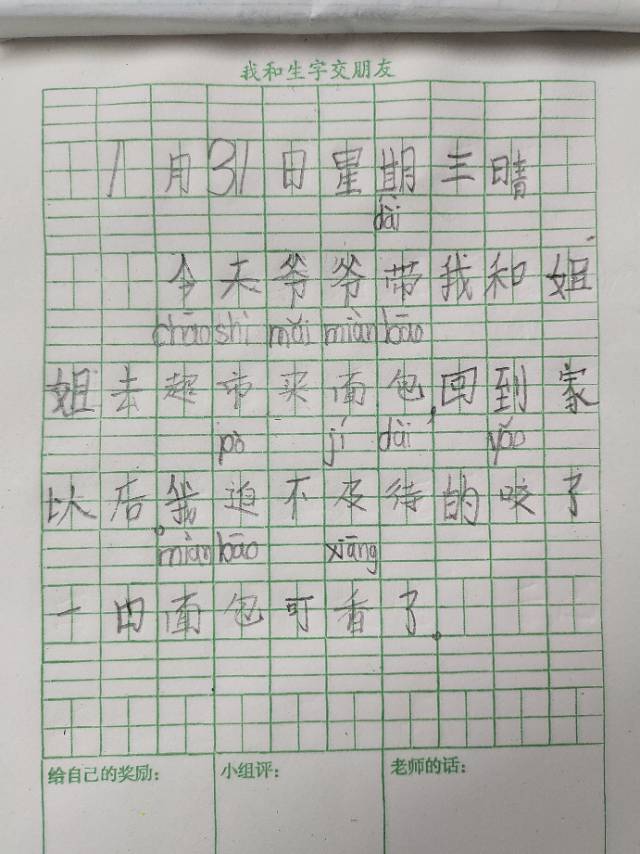 我和生字交朋友
1月31日星期三晴
dài
今天爷爷带我和姐
chāo shì mǎi miàn bāo
姐去超市买面包,回到家
pò jí dài yǎo
以后。我迫不及待的咬了
miàn bāo xiāng
一口面包可香了。
给自己的奖励: 小组评: 老师的话: